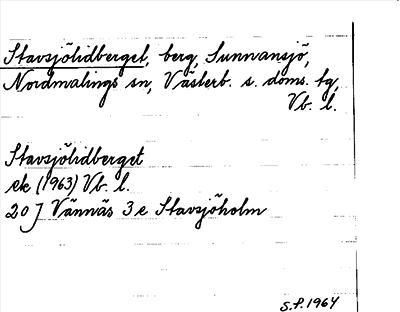 Stavsjölidberget, berg, Sunnansjö,
Nordmalings sn, Västerb. s. doms. tg,
Vb. l.
Stavsjölidberget
ek (1963) Vb. l.
20 J Vännäs 3e Stavsjöholm
S.P. 1964